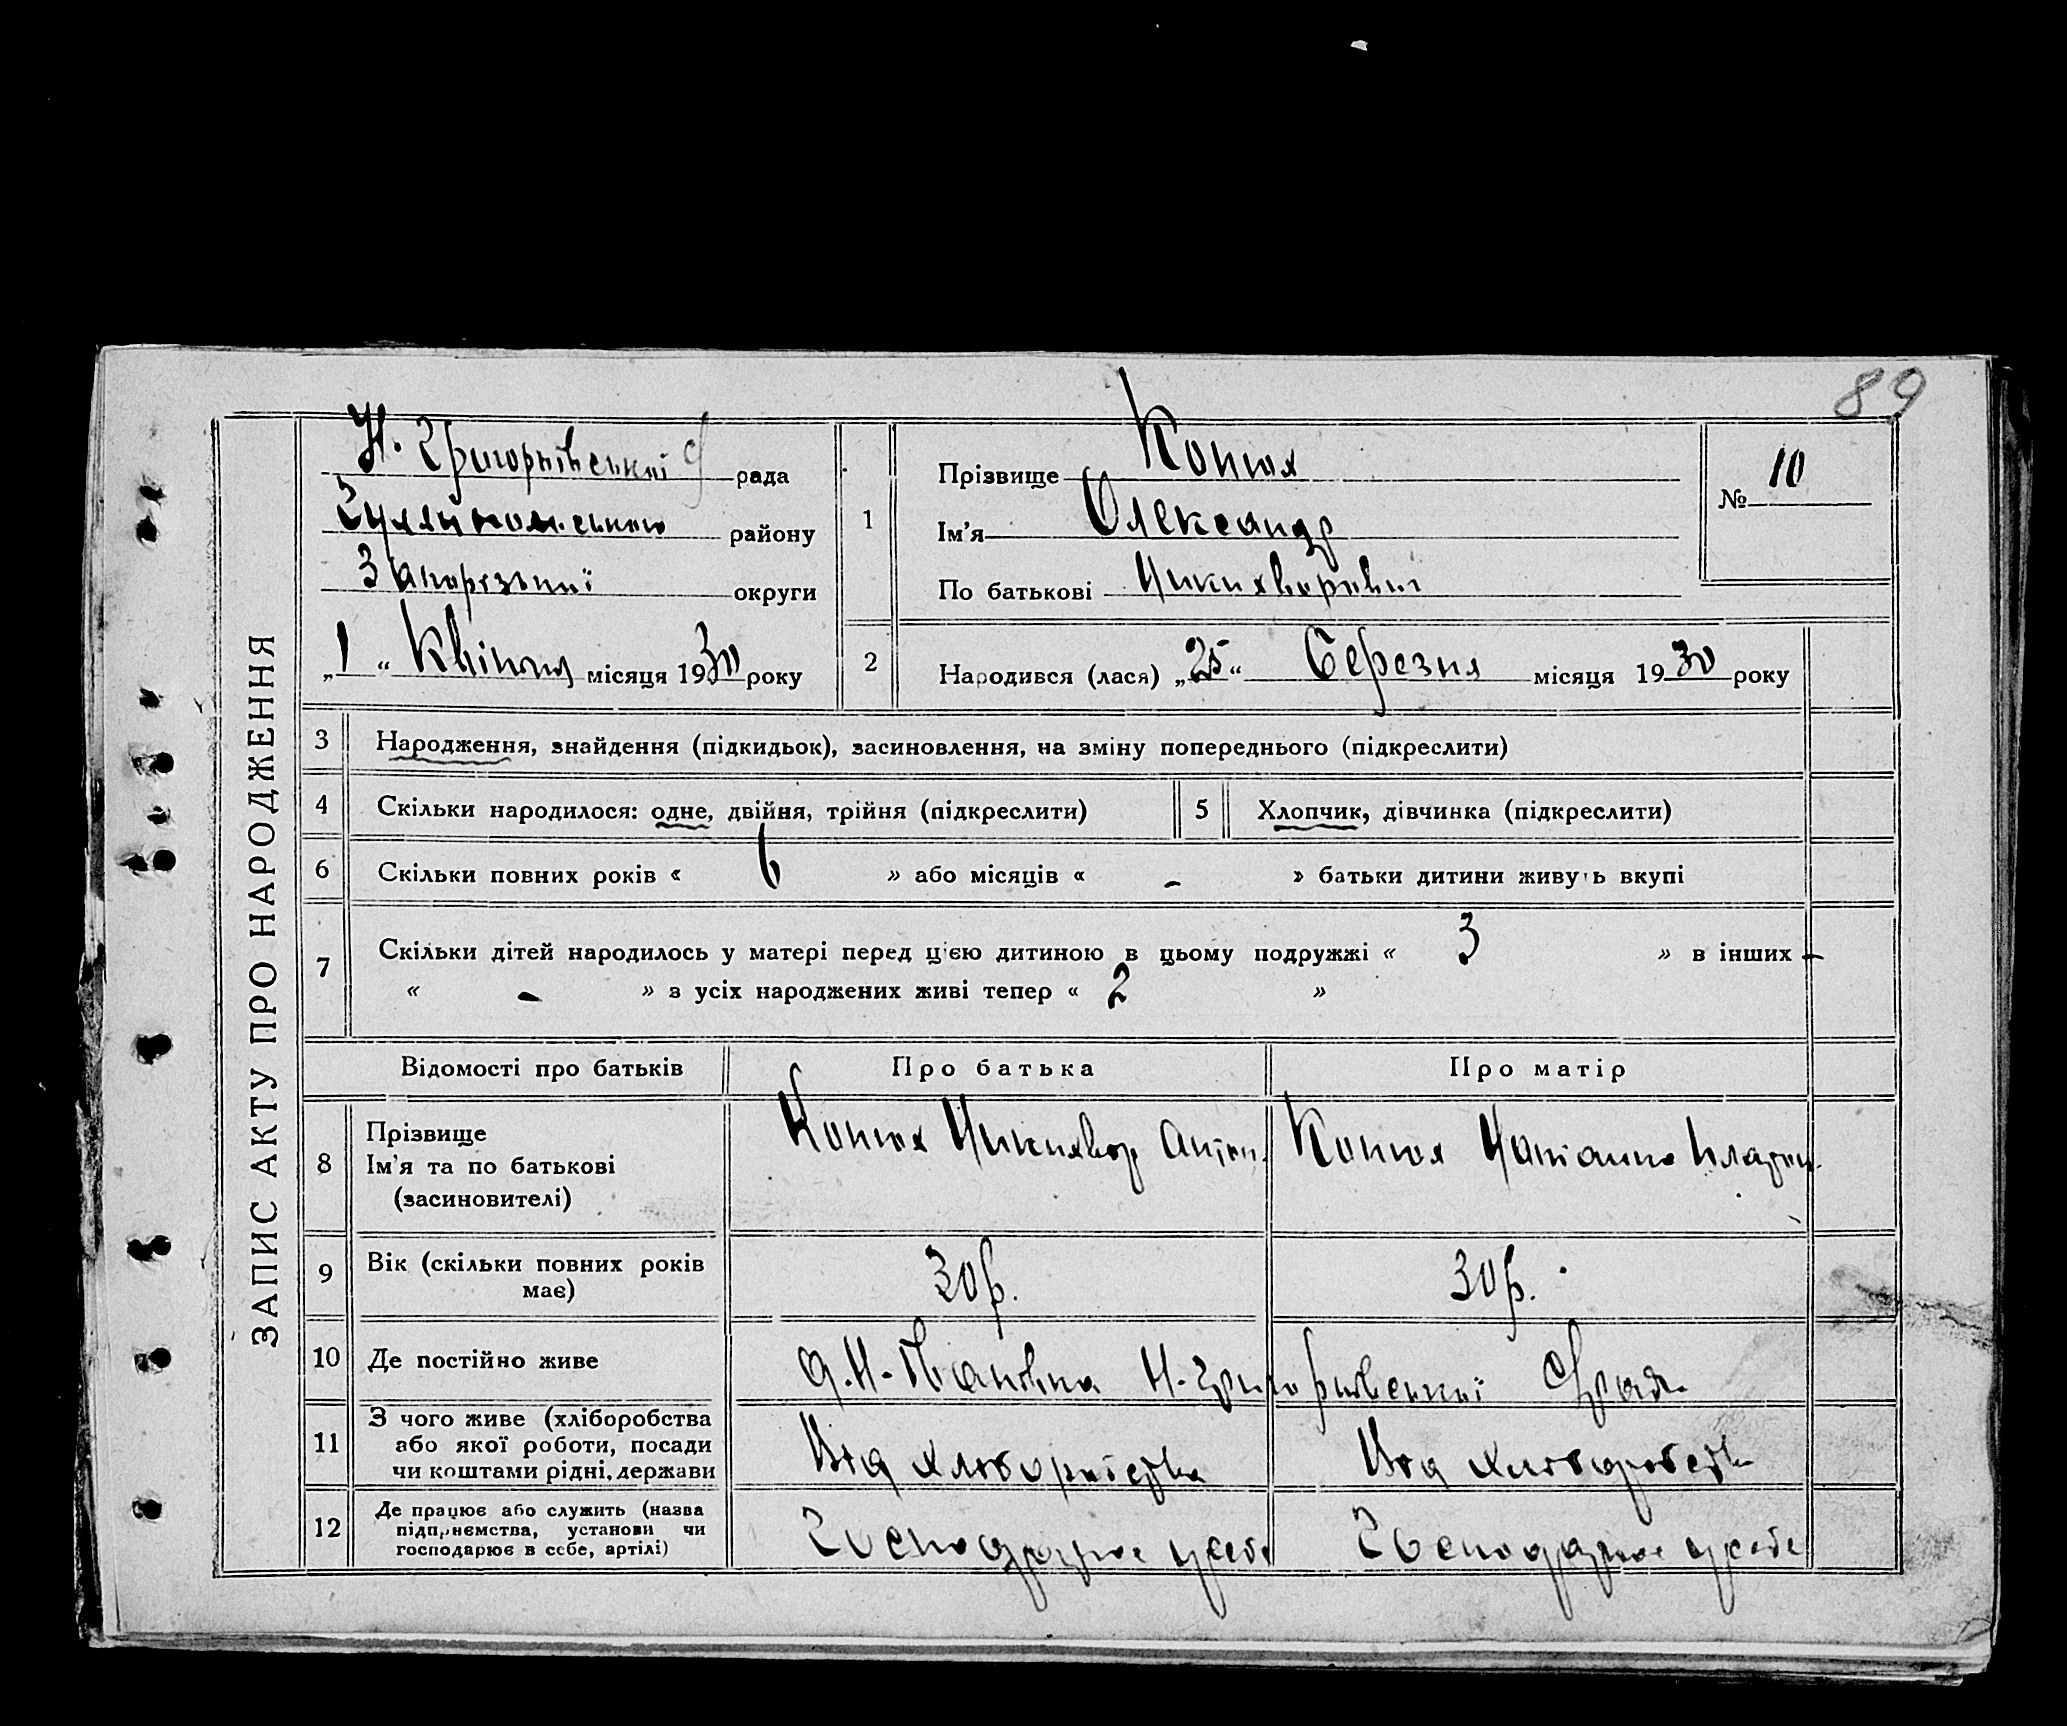 89
ЗАПИС АКТУ ПРО НАРОДЖЕННЯ
Н. Григорьївської рада
Гуляйпольського району
Запорізької округи
„1“ Квітня місяця 1930 року
1
Прізвище Конюх
Ім'я Олександр
По батькові Никихворович
№ 10
2
Народився (лася) „25“ Березня місяця 1930 року
3 Народження, знайдення (підкидьок), засиновлення, на зміну попереднього (підкреслити)
4 Скільки народилося: одне, двійня, трійня (підкреслити)
5 Хлопчик, дівчинка (підкреслити)
6 Скільки повних років « 6 » або місяців « - » батьки дитини живуть вкупі
7 Скільки дітей народилось у матері перед цією дитиною в цьому подружжі « 3 » в інших
« - » з усіх народжених живі тепер « 2 »
Відомості про батьків
Про батька
Про матір
8 Прізвище
Ім'я та по батькові
(засиновителі)
Конюх Никихвор Антон.
Конюх
9 Вік (скільки повних років
має)
30 р.
30 р.
10 Де постійно живе
Н. Григорьївської С/рад.
11 З чого живе (хліборобства
або якої роботи, посади
чи коштами рідні, держави
Від хліборобства
Від хліборобств
12 Де працює або служить (назва
підприємства, установи чи
господарює в себе, артілі)
Господарює у себе
Господарює у себе